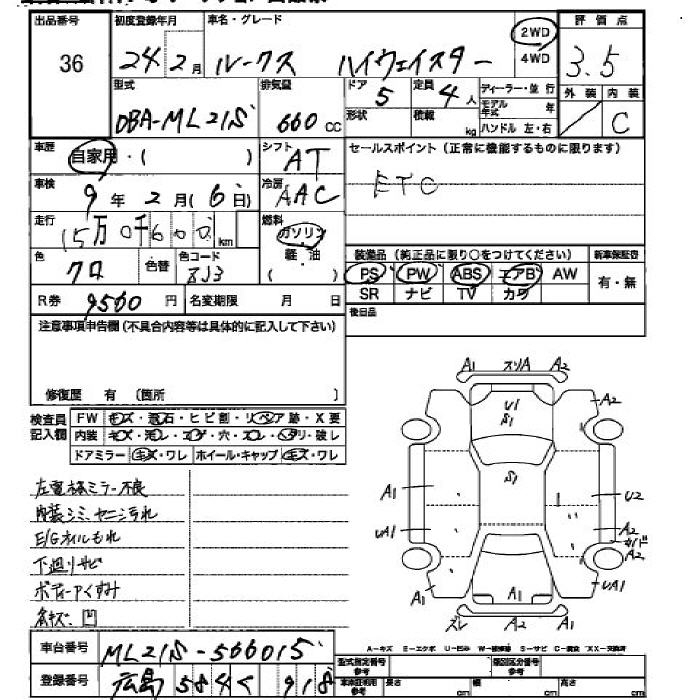 出品番号 初度登録年月 車名・グレード 評価点
36 24 2月 ルークス ハイウェイスター 2WD 4WD 3.5
型式 排気量 ドア 定員 ディーラー・並行 外装 内装
DBA-ML21S 660 CC 5 4人 モデル年式 年 C
形状 積載 kg ハンドル 左・右
車歴 自家用・( ) シフト AT セールスポイント(正常に機能するものに限ります)
車検 9年2月(6日) 冷房 AAC ETC
走行 15万0千600 km 燃料 ガソリン
軽・油
( )
色 クロ 色替 色コード ZJ3 装備品(純正品に限り○をつけてください) 新車保証書
PS PW ABS エアB AW 有・無
R券 9560円 名変期限 月 日 SR ナビ TV カワ
注意事項申告欄(不具合内容等は具体的に記入して下さい) 後日品
修復歴 有 (箇所 )
検査員記入欄 FW キズ・飛石・ヒビ割・リペア跡・X要
内装 キズ・汚レ・コゲ・穴・スレ・ヘタリ・破レ
ドアミラー キズ・ワレ ホイール・キャップ キズ・ワレ
A1 スリA A2
U1 A2
S1
S1
A1 U2
UA1 A2
A2
A1 A1 UA1
ズレ A2 A1
内装シミ、ヤニ汚れ
E/Gオイルもれ
下廻りサビ
ボディーアクすみ
各キズ、凹
車台番号 ML21S-566015
A-キズ E-エクボ U-凹み S-サビ C-腐食 XX-交換済
登録番号 広島 584 く 918
型式指定番号 参考 類別区分番号 参考
車検証利用 参考 長さ cm 幅 cm 高さ cm